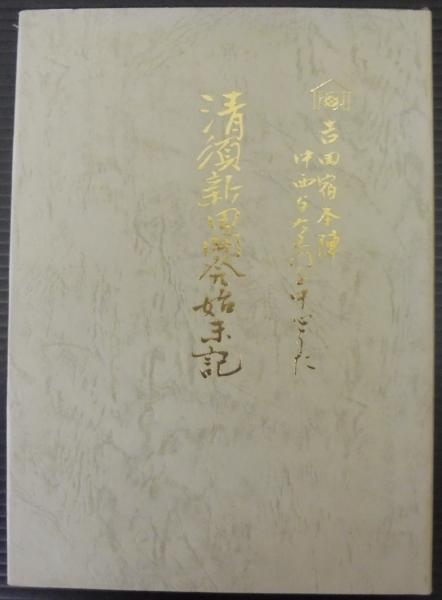 吉田宿本陣
中西与右衛門を中心とした
清須新田開発始末記